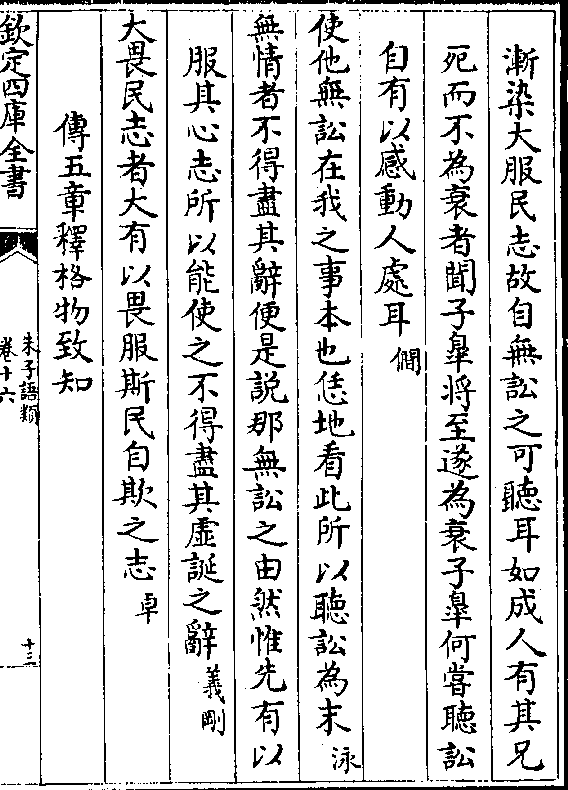 漸染大服民志故自無訟之可聽耳如成人有其兄
死而不為衰者聞子臯将至遂為衰子臯何嘗聽訟
自有以感動人處耳僩
使他無訟在我之事本也恁地看此所以聽訟為末泳
無情者不得盡其辭便是説那無訟之由然惟先有以
服其心志所以能使之不得盡其虛誕之辭義剛
大畏民志者大有以畏服斯民自欺之志卓
傳五章釋格物致知
欽定四庫全書
朱子語類
卷十六
十三